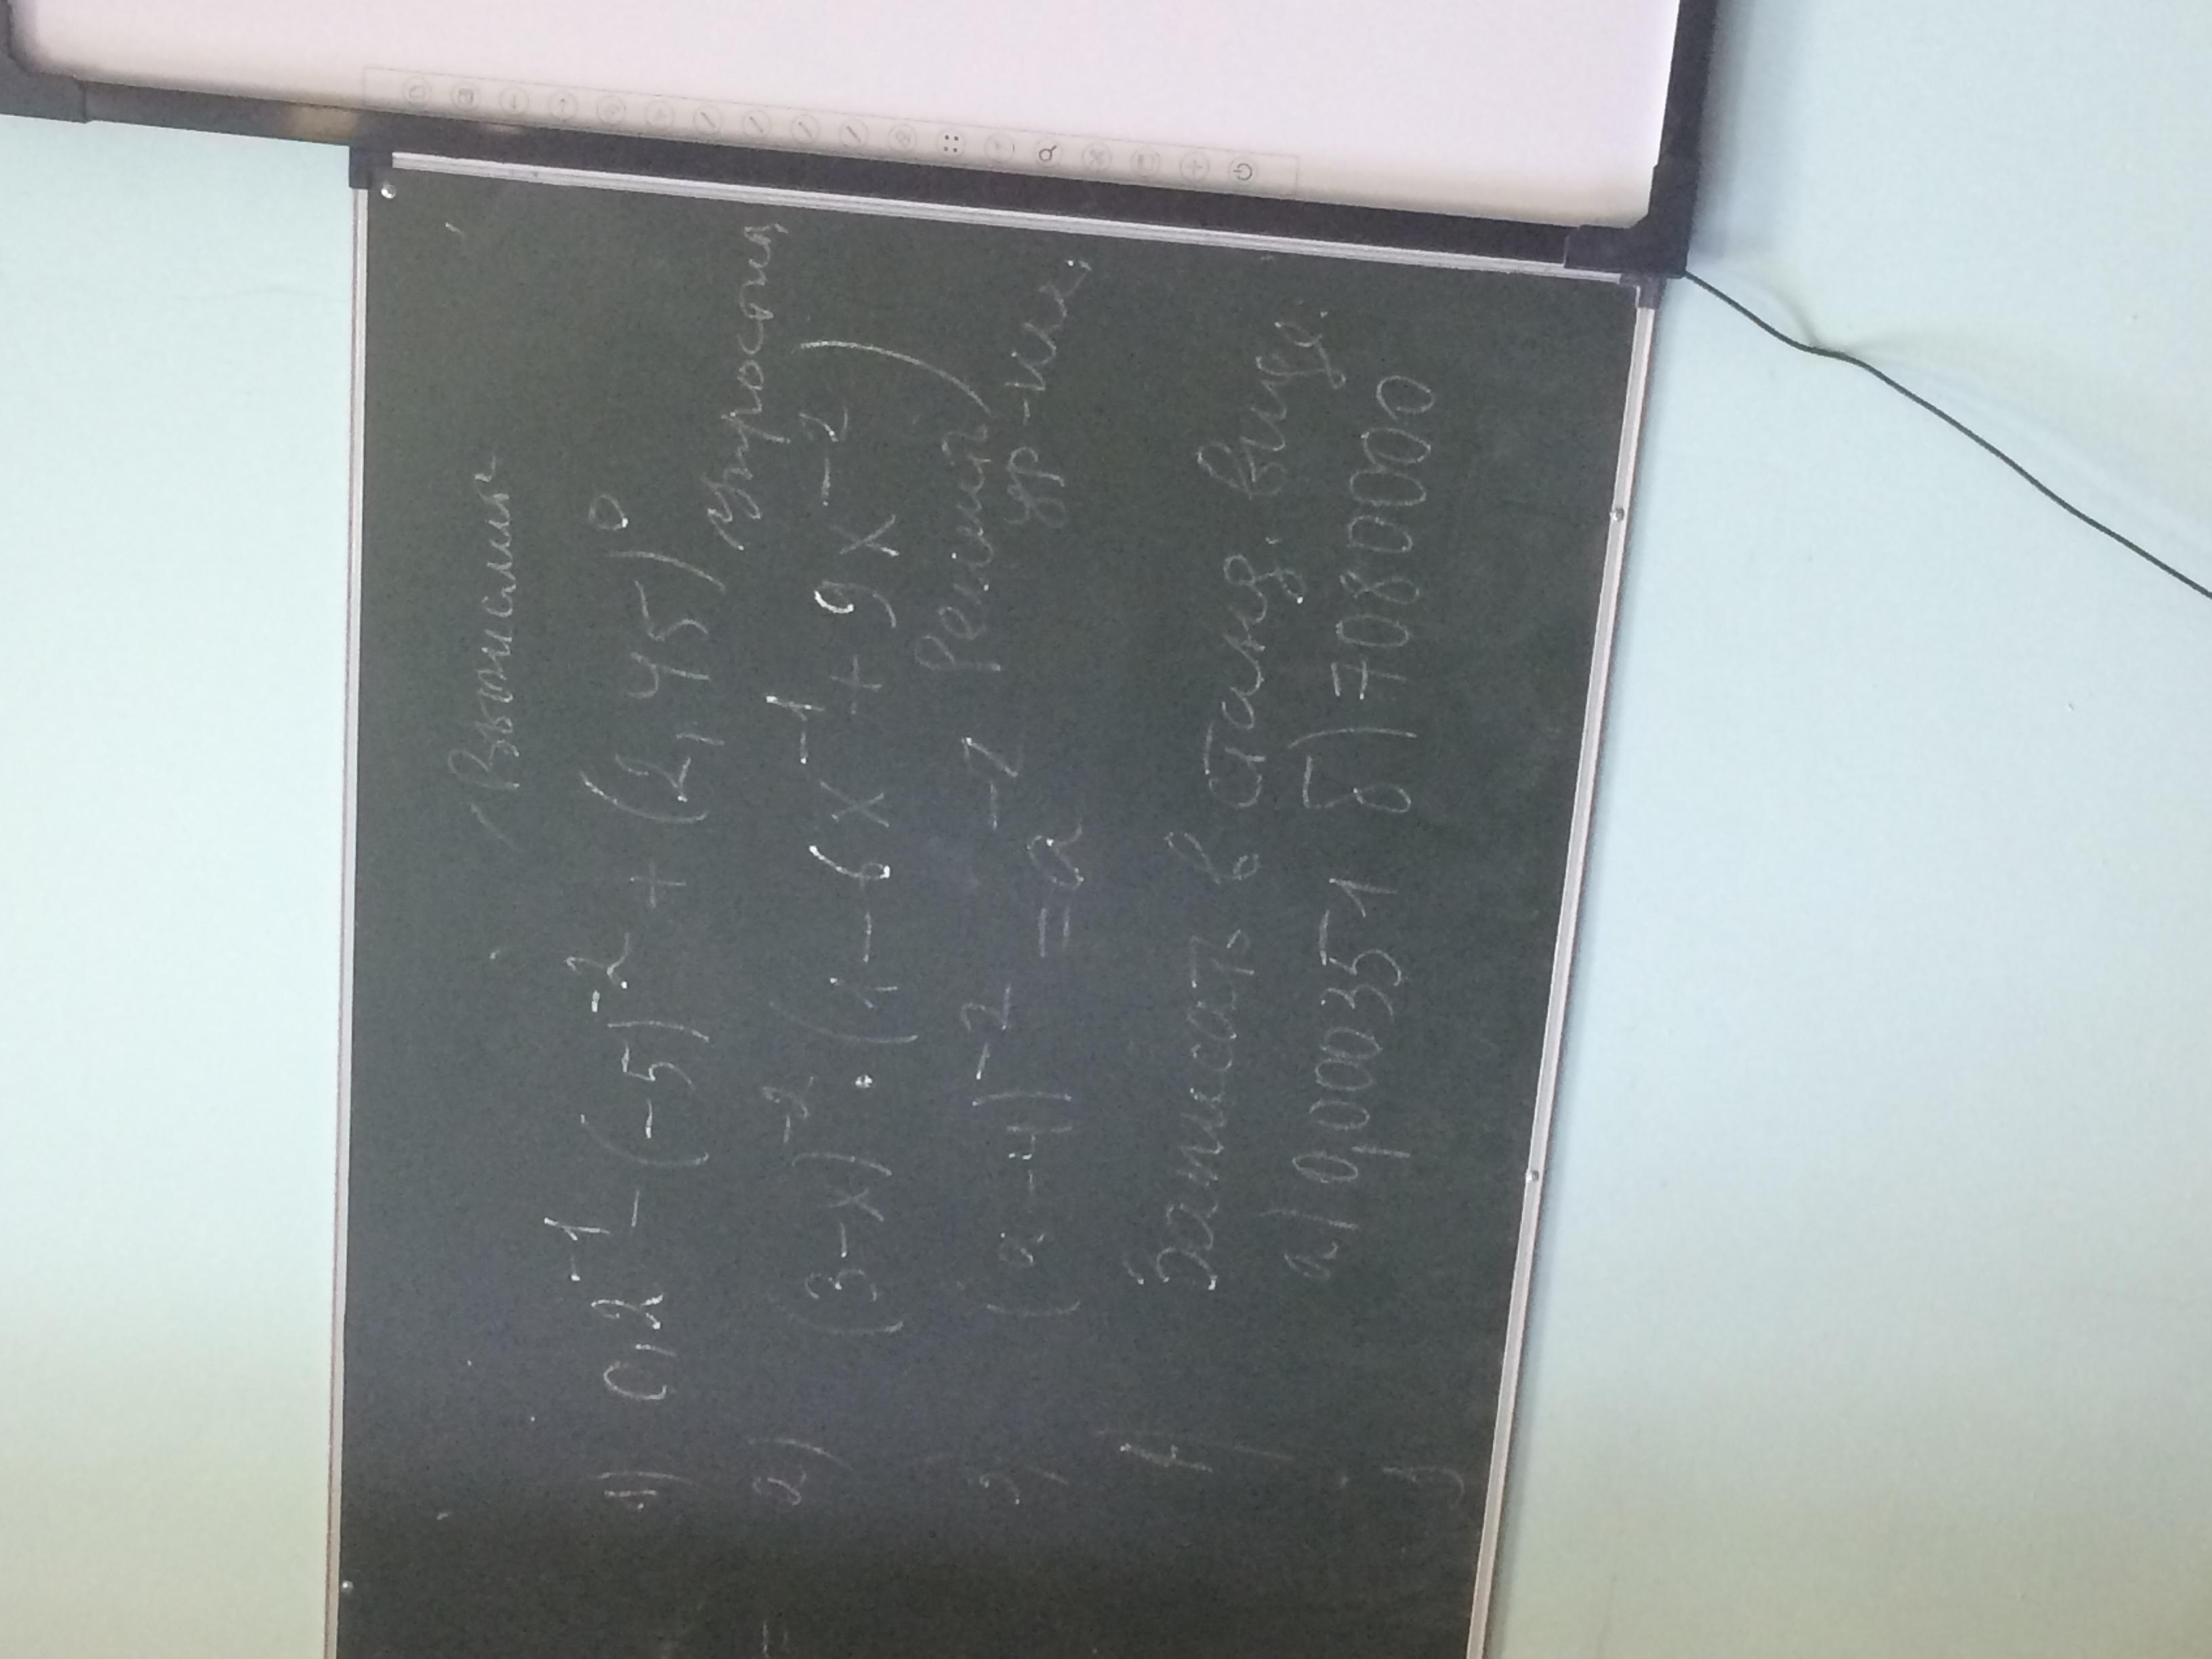 Вычислить
1) 0,2⁻¹ - (-5)⁻² + (2,45)⁰
Упростить
2) (3-x)⁻² · (1 - 6x⁻¹ + 9x⁻²)
Решить ур-ние
3) (a-4)⁻² = a⁻²
4) Записать в станд. виде.
а) 0,000351 б) 7080000